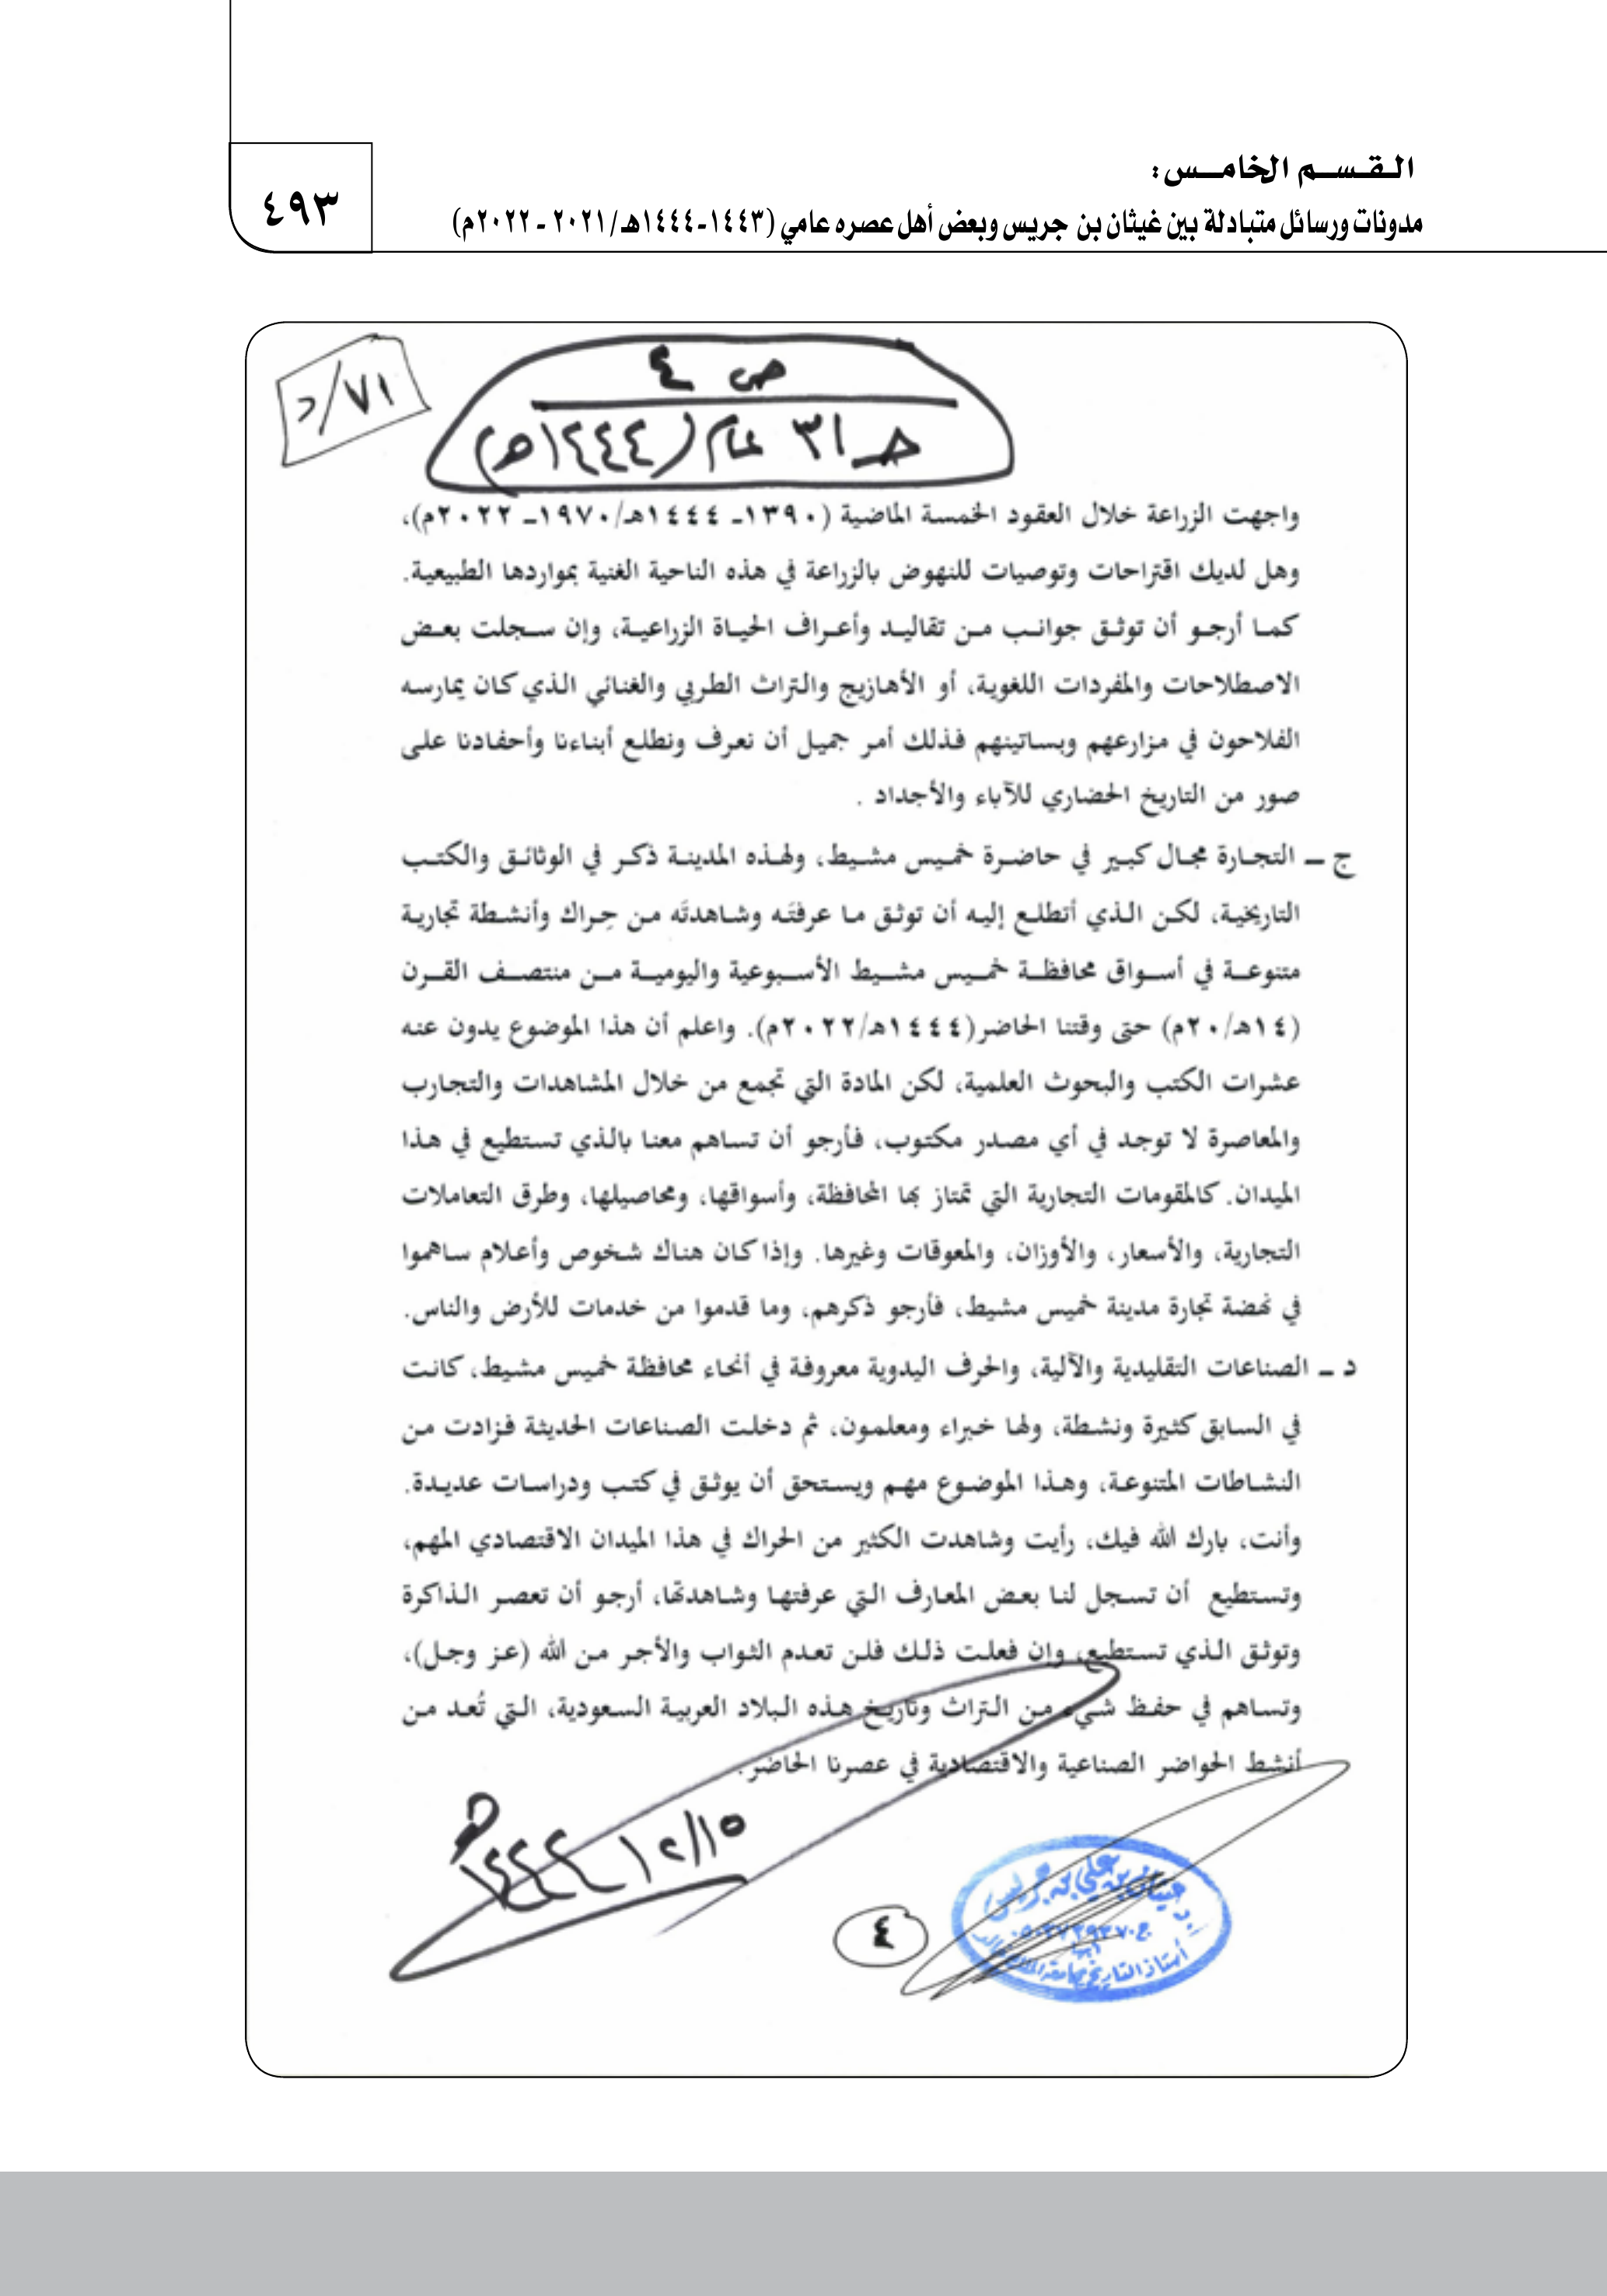 القسم الخامس:
مدونات ورسائل متبادلة بين غيثان بن جريس وبعض أهل عصره عامي (١٤٤٣-١٤٤٤هـ/٢٠٢١ - ٢٠٢٢م)
٤٩٣
ص ٤
٧١/د
جـ ٣١ عام (١٤٤٤هـ)
واجهت الزراعة خلال العقود الخمسة الماضية (١٣٩٠ــ ١٤٤٤هـ/١٩٧٠ــ ٢٠٢٢م)،
وهل لديك اقتراحات وتوصيات للنهوض بالزراعة في هذه الناحية الغنية بمواردها الطبيعية.
كما أرجو أن توثق جوانب من تقاليد وأعراف الحياة الزراعية، وإن سجلت بعض
الاصطلاحات والمفردات اللغوية، أو الأهازيج والتراث الطربي والغنائي الذي كان يمارسه
الفلاحون في مزارعهم وبساتينهم فذلك أمر جميل أن نعرف ونطلع أبناءنا وأحفادنا على
صور من التاريخ الحضاري للآباء والأجداد .
ج ــ التجارة مجال كبير في حاضرة خميس مشيط، ولهذه المدينة ذكر في الوثائق والكتب
التاريخية، لكن الذي أتطلع إليه أن توثق ما عرفتَه وشاهدتَه من حِراك وأنشطة تجارية
متنوعة في أسواق محافظة خميس مشيط الأسبوعية واليومية من منتصف القرن
(١٤هـ/٢٠م) حتى وقتنا الحاضر(١٤٤٤هـ/٢٠٢٢م). واعلم أن هذا الموضوع يدون عنه
عشرات الكتب والبحوث العلمية، لكن المادة التي تجمع من خلال المشاهدات والتجارب
والمعاصرة لا توجد في أي مصدر مكتوب، فأرجو أن تساهم معنا بالذي تستطيع في هذا
الميدان. كالمقومات التجارية التي تمتاز بها المحافظة، وأسواقها، ومحاصيلها، وطرق التعاملات
التجارية، والأسعار، والأوزان، والمعوقات وغيرها. وإذا كان هناك شخوص وأعلام ساهموا
في نهضة تجارة مدينة خميس مشيط، فأرجو ذكرهم، وما قدموا من خدمات للأرض والناس.
د ــ الصناعات التقليدية والآلية، والحرف اليدوية معروفة في أنحاء محافظة خميس مشيط، كانت
في السابق كثيرة ونشطة، ولها خبراء ومعلمون، ثم دخلت الصناعات الحديثة فزادت من
النشاطات المتنوعة، وهذا الموضوع مهم ويستحق أن يوثق في كتب ودراسات عديدة.
وأنت، بارك الله فيك، رأيت وشاهدت الكثير من الحراك في هذا الميدان الاقتصادي المهم،
وتستطيع أن تسجل لنا بعض المعارف التي عرفتها وشاهدتها، أرجو أن تعصر الذاكرة
وتوثق الذي تستطيع، وإن فعلت ذلك فلن تعدم الثواب والأجر من الله (عز وجل)،
وتساهم في حفظ شيء من التراث وتاريخ هذه البلاد العربية السعودية، التي تُعد من
أنشط الحواضر الصناعية والاقتصادية في عصرنا الحاضر.
١٥/
١٤٤٤هـ
أ.د. غيثان بن علي بن جريس
أستاذ التاريخ بجامعة الملك خالد
أبها
٤